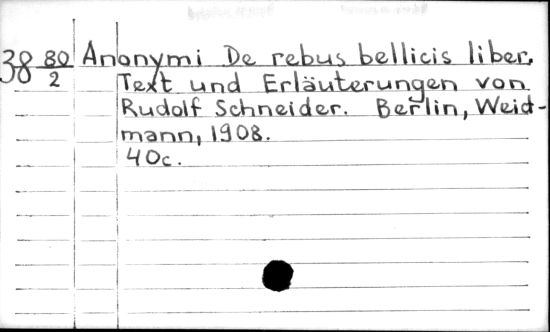 38 80/2 Anonymi De rebus bellicis liber.
Text und Erläuterungen von
Rudolf Schneider. Berlin, Weid-
mann, 1908.
40c.